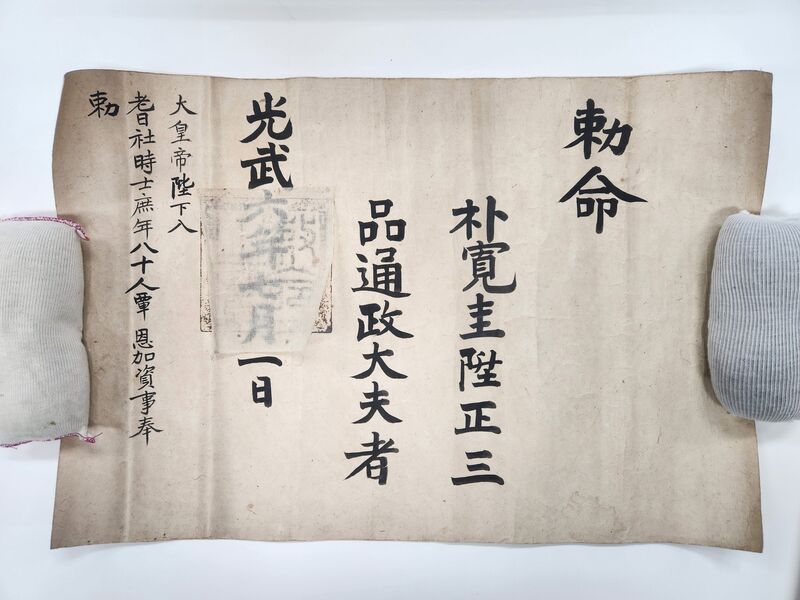 勅命
朴寛圭陞正三
品通政大夫者
光武六年七月一日
大皇帝陛下入
耆社時士庶年八十人覃恩加資事奉
勅